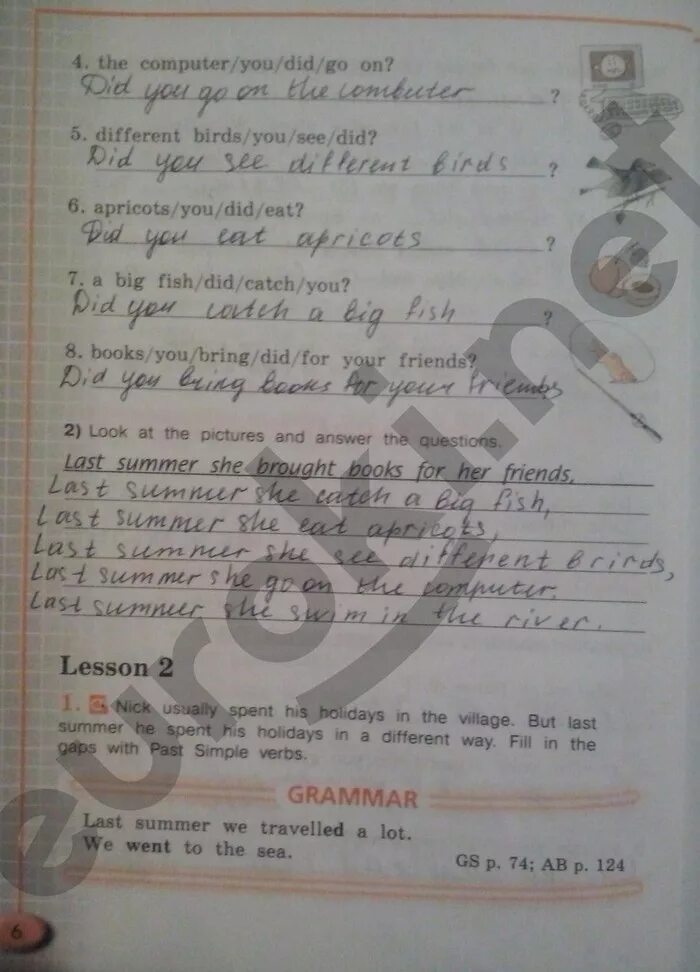 4. the computer/you/did/go on?
Did you go on the combuter ?
5. different birds/you/see/did?
Did you see different birds ?
6. apricots/you/did/eat?
Did you eat apricots ?
7. a big fish/did/catch/you?
Did you catch a big fish ?
8. books/you/bring/did/for your friends?
Did you bring books for your friends
2) Look at the pictures and answer the questions.
Last summer she brought books for her friends.
Last summer she catch a big fish,
Last summer she eat apricots,
Last summer she see different brirds,
Last summer she go on the computer.
Last summer she swim in the river.
Lesson 2
1. Nick usually spent his holidays in the village. But last
summer he spent his holidays in a different way. Fill in the
gaps with Past Simple verbs.
GRAMMAR
Last summer we travelled a lot.
We went to the sea.
GS p. 74; AB p. 124
6
euroki.net